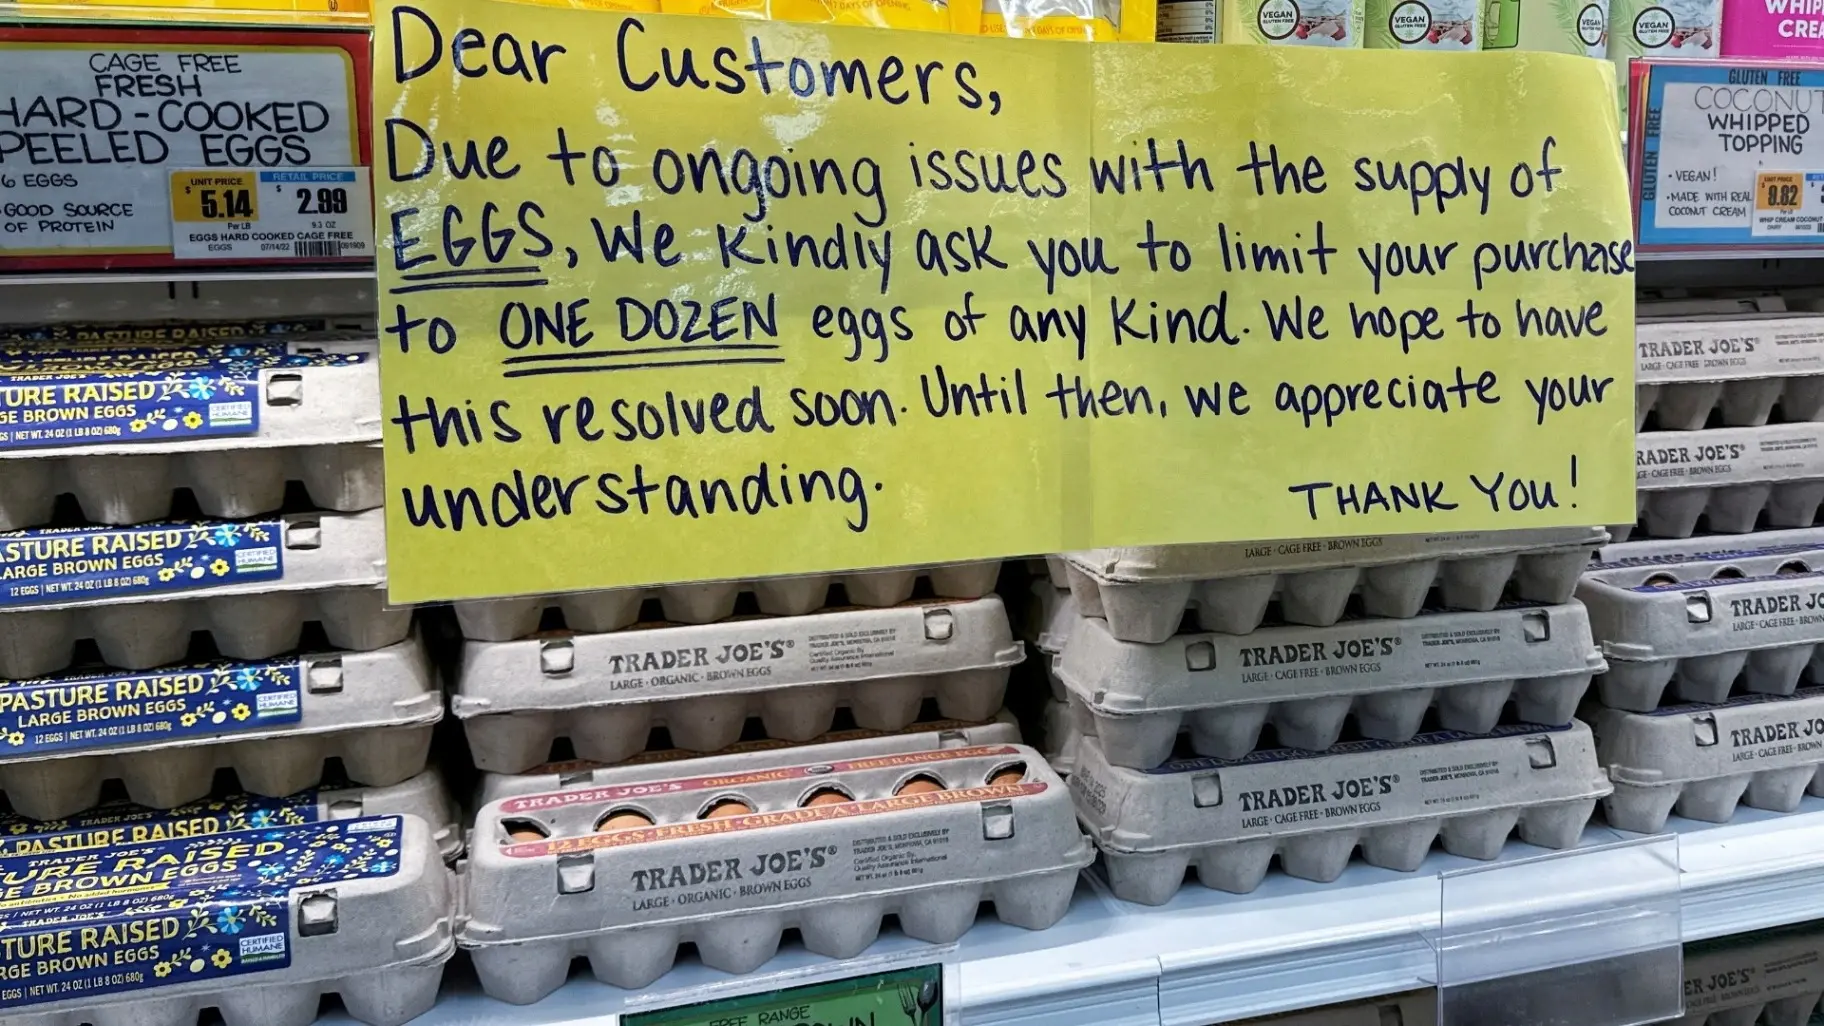 Dear Customers,
Due to ongoing issues with the supply of
EGGS, We Kindly ask you to limit your purchase
to ONE DOZEN eggs of any Kind. We hope to have
this resolved soon. Until then, we appreciate your
understanding.
THANK YOU!
CAGE FREE
FRESH
HARD-COOKED
PEELED EGGS
6 EGGS
GOOD SOURCE
OF PROTEIN
UNIT PRICE
$5.14
Per LB
RETAIL PRICE
$2.99
9.3 OZ
EGGS HARD COOKED CAGE FREE
EGGS 07/14/22
VEGAN
GLUTEN FREE
VEGAN
GLUTEN FREE
VEGAN
VEGAN
GLUTEN FREE
GLUTEN FREE
GLUTEN FREE
COCONUT
WHIPPED
TOPPING
• VEGAN!
• MADE WITH REAL
COCONUT CREAM
8.82
PASTURE RAISED
TRADER JOE'S
TURE RAISED
GE BROWN EGGS
CERTIFIED
HUMANE
NET WT. 24 OZ (1 LB 8 OZ) 680g
ASTURE RAISED
LARGE BROWN EGGS
CERTIFIED
HUMANE
12 EGGS | NET WT. 24 OZ (1 LB 8 OZ) 680g
PASTURE RAISED
LARGE BROWN EGGS
CERTIFIED
HUMANE
12 EGGS | NET WT. 24 OZ (1 LB 8 OZ) 680g
TRADER JOE'S
PASTURE RAISED
TRADER JOE'S
URE RAISED
GE BROWN EGGS
NET WT. 24 OZ (1 LB 8 OZ) 680g
TRADER JOE'S
TURE RAISED
RGE BROWN EGGS
CERTIFIED
HUMANE
EGGS | NET WT. 24 OZ (1 LB 8 OZ) 680g
TRADER JOE'S®
LARGE · ORGANIC · BROWN EGGS
TRADER JOE'S ORGANIC FREE RANGE EGGS
12 EGGS · FRESH · GRADE A · LARGE BROWN
TRADER JOE'S®
LARGE · ORGANIC · BROWN EGGS
LARGE · CAGE FREE · BROWN EGGS
TRADER JOE'S®
LARGE · CAGE FREE · BROWN EGGS
TRADER JOE'S®
LARGE · CAGE FREE · BROWN EGGS
TRADER JOE'S®
LARGE · CAGE FREE · BROWN EGGS
RADER JOE'S®
CAGE FREE · BROWN EGGS
TRADER JO
LARGE · CAGE FREE
TRADER JO
LARGE · CAGE FREE · BROWN
ER JOE'S®
FREE RANGE